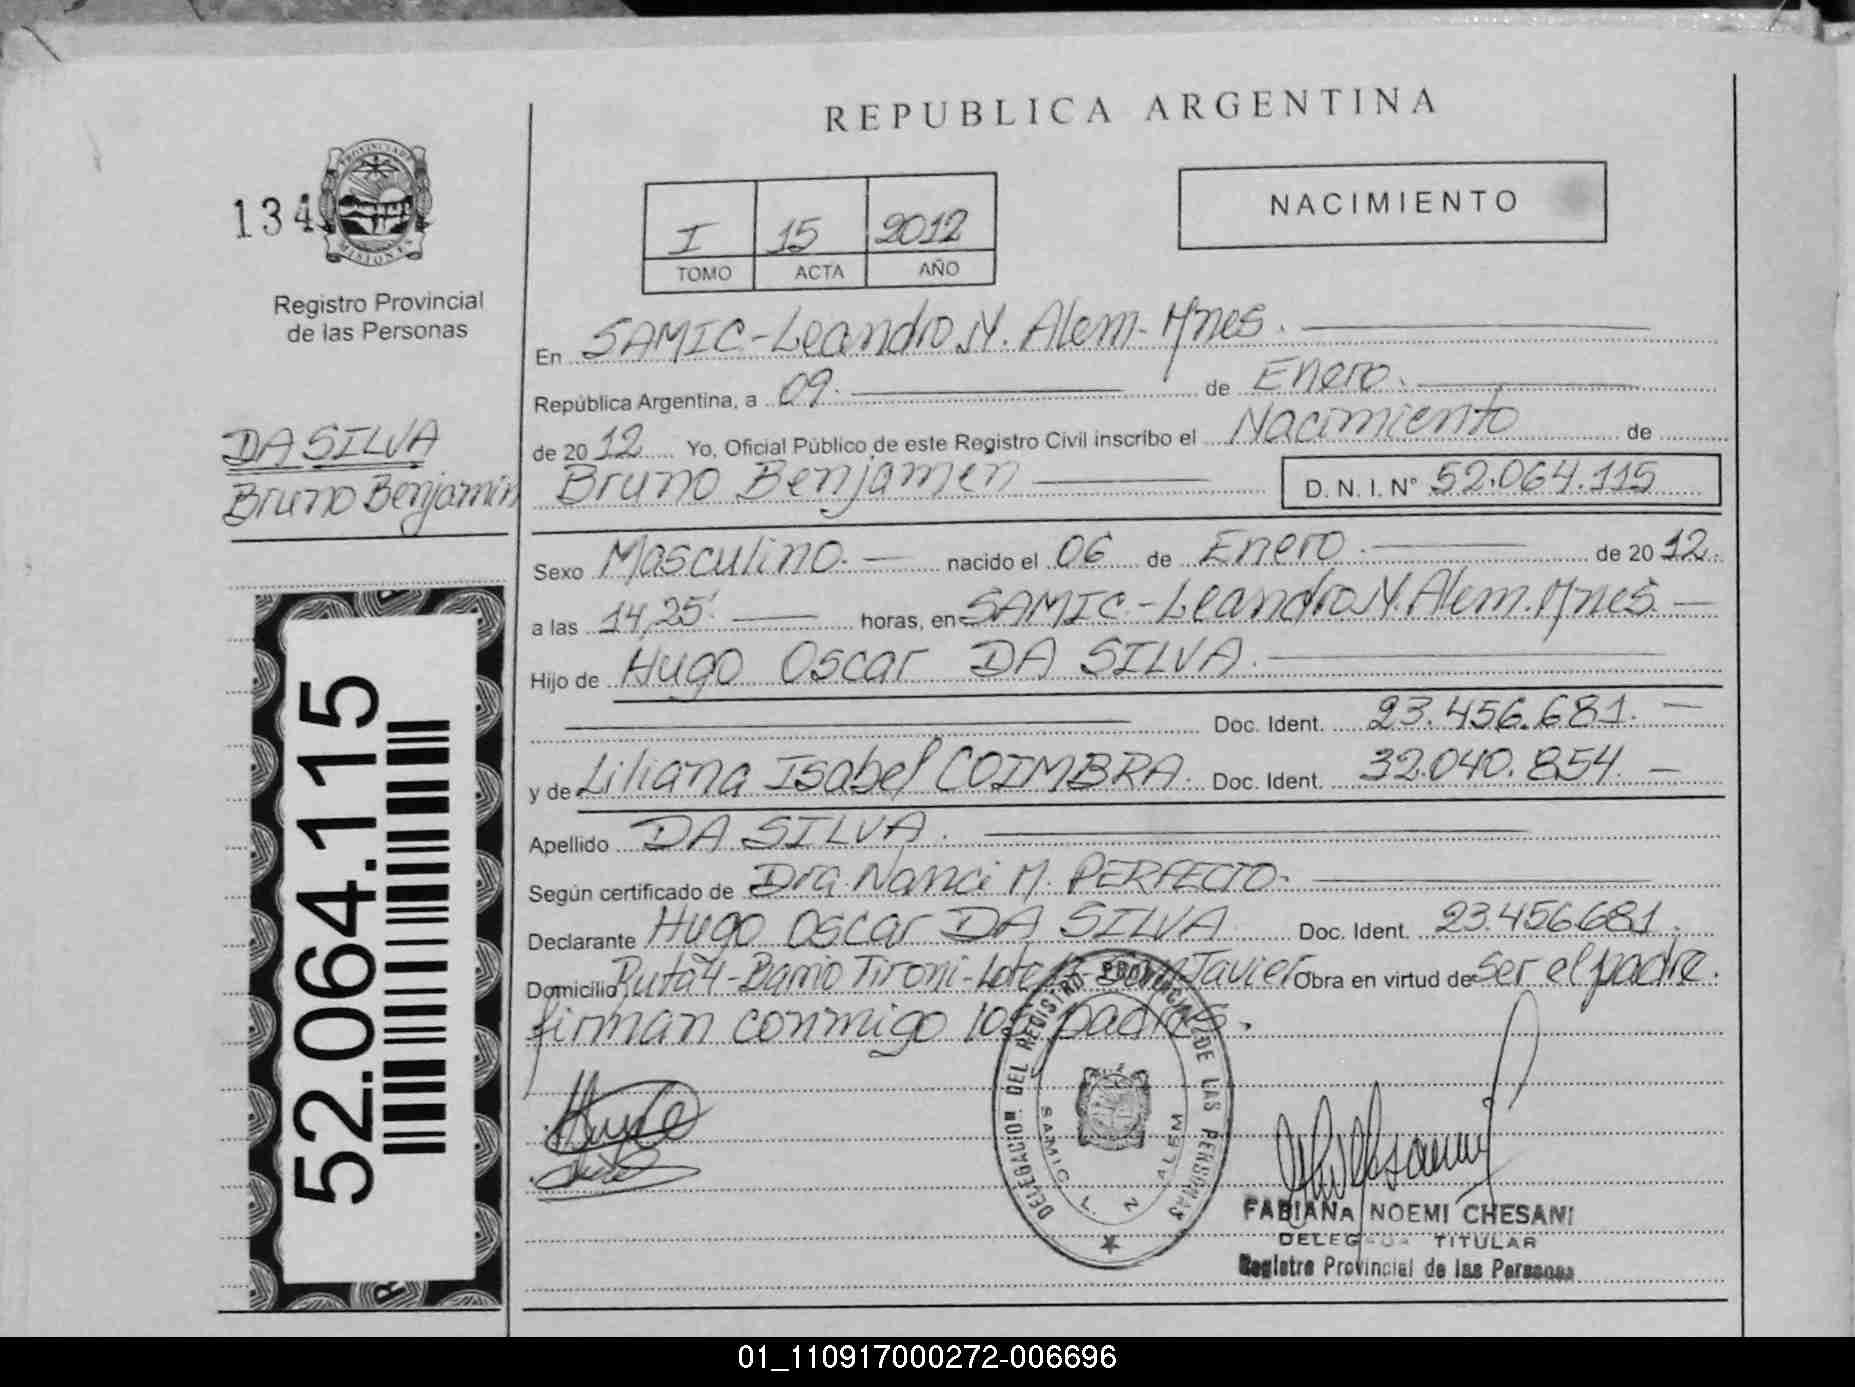 REPUBLICA ARGENTINA
134
PROVINCIA DE
MISIONES
Registro Provincial
de las Personas
I 15 2012
TOMO ACTA AÑO
NACIMIENTO
En SAMIC-Leandro N. Alem-Mnes.
República Argentina, a 09. de Enero.
de 2012 Yo, Oficial Público de este Registro Civil inscribo el Nacimiento de
DA SILVA
Bruno Benjamin
Bruno Benjamin D. N. I. N° 52.064.115
Sexo Masculino. nacido el 06 de Enero. de 2012.
a las 14,25' horas, en SAMIC-Leandro N. Alem. Mnes.
Hijo de Hugo Oscar DA SILVA.
Doc. Ident. 23.456.681.
y de Liliana Isabel COIMBRA. Doc. Ident. 32.040.854.
Apellido DA SILVA.
Según certificado de Dra. Nanci M. PERFECTO.
Declarante Hugo Oscar DA SILVA Doc. Ident. 23.456.681.
Domicilio Ruta 4-Barrio Tironi-Lote Javier Obra en virtud de ser el padre.
firman conmigo los padres.
52.064.115
DELEGACION DEL REGISTRO PROVINCIAL DE LAS PERSONAS
SAMIC L. N. ALEM
FABIANA NOEMI CHESANI
DELEGADA TITULAR
Registro Provincial de las Personas
01_110917000272-006696